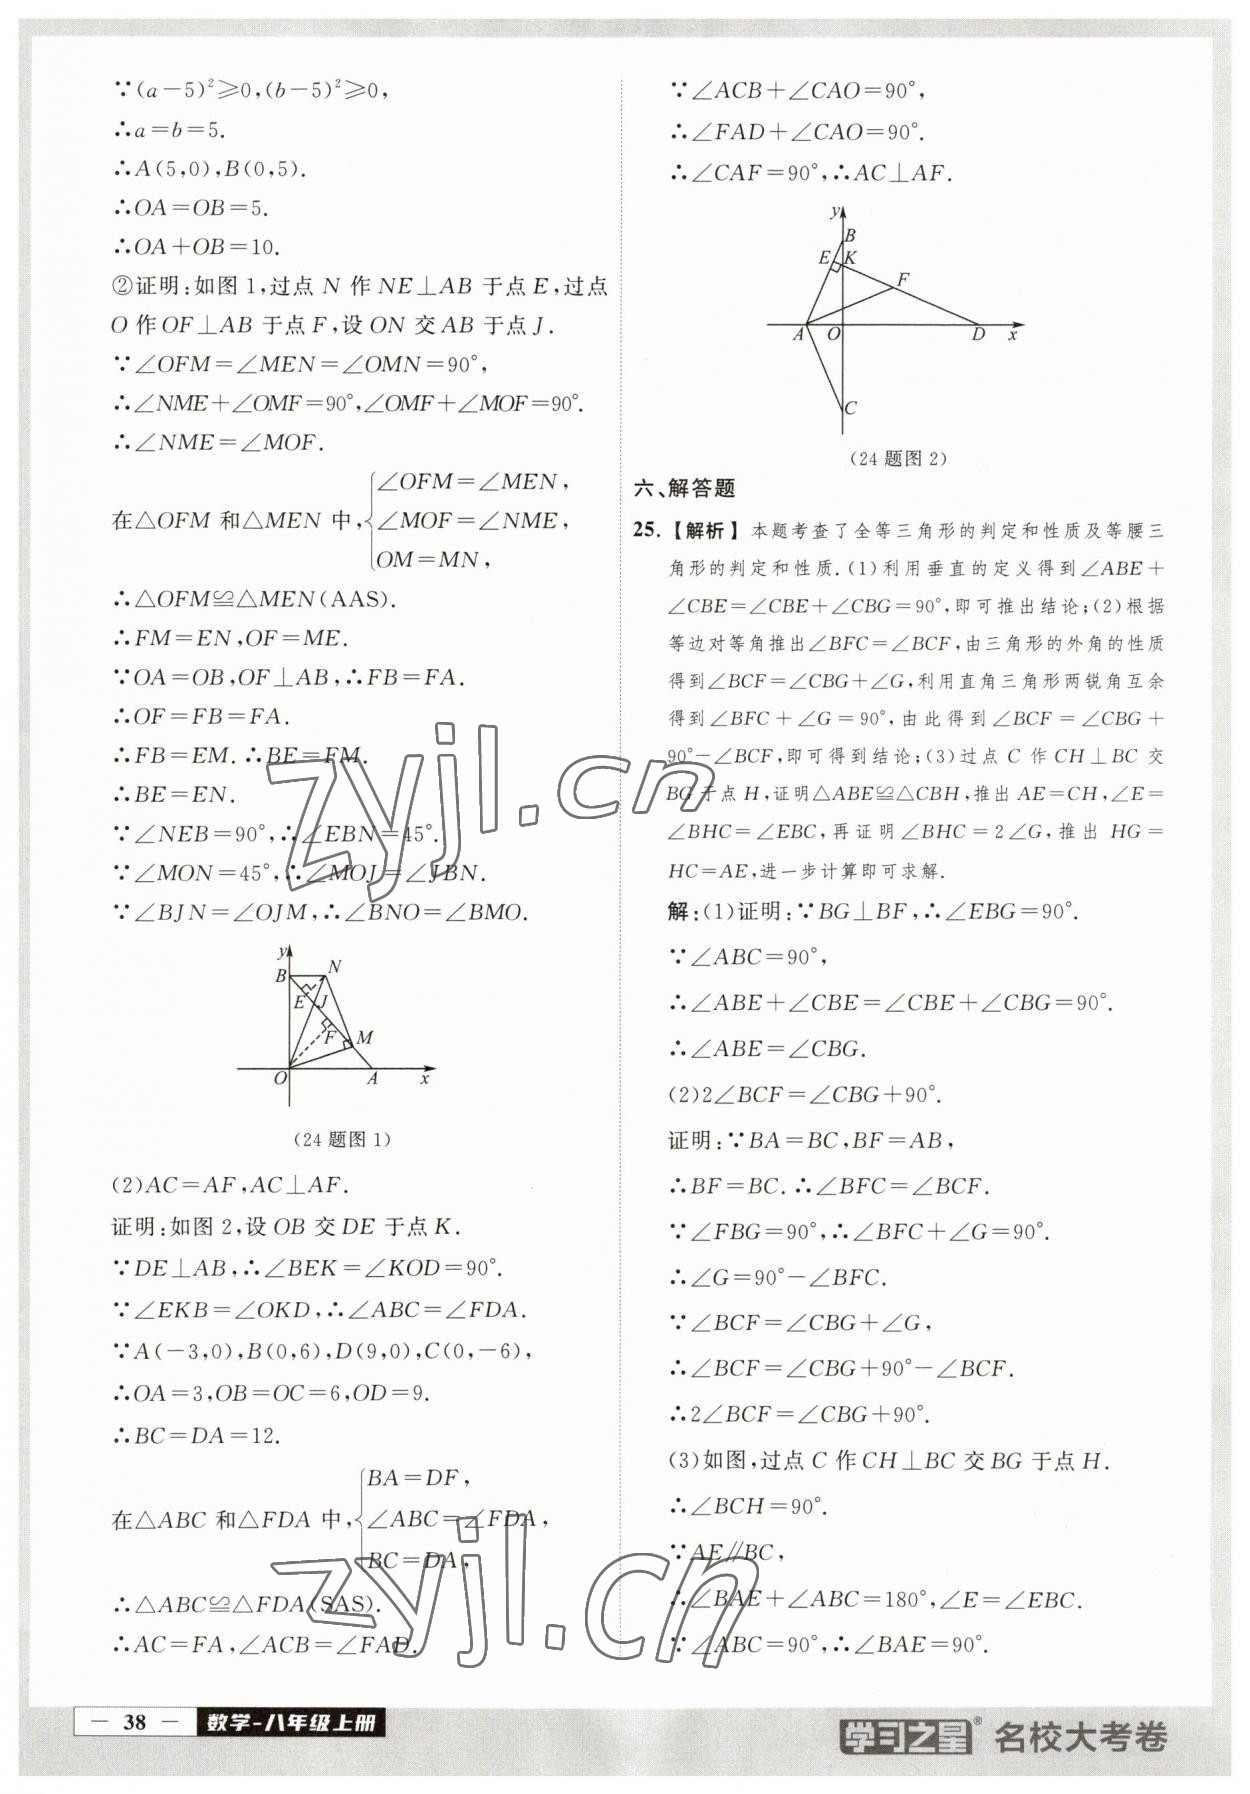 ∵(a－5)²≥0,(b－5)²≥0,
∴a＝b＝5.
∴A(5,0),B(0,5).
∴OA＝OB＝5.
∴OA＋OB＝10.
②证明:如图1,过点 N 作 NE⊥AB 于点E,过点
O作OF⊥AB 于点F,设ON 交AB 于点J.
∵∠OFM＝∠MEN＝∠OMN＝90°,
∴∠NME＋∠OMF＝90°,∠OMF＋∠MOF＝90°.
∴∠NME＝∠MOF.
∠OFM＝∠MEN,
在△OFM 和△MEN 中,{∠MOF＝∠NME,
OM＝MN,
∴△OFM≌△MEN(AAS).
∴FM＝EN,OF＝ME.
∵OA＝OB,OF⊥AB,∴FB＝FA.
∴OF＝FB＝FA.
∴FB＝EM.∴BE＝FM.
∴BE＝EN.
∵∠NEB＝90°,∴∠EBN＝45°.
∵∠MON＝45°,∴∠MOJ＝∠JBN.
∵∠BJN＝∠OJM,∴∠BNO＝∠BMO.
y
B
N
E
J
F
M
O
A
x
(24题图1)
(2)AC＝AF,AC⊥AF.
证明:如图2,设OB交DE于点K.
∵DE⊥AB,∴∠BEK＝∠KOD＝90°.
∵∠EKB＝∠OKD,∴∠ABC＝∠FDA.
∵A(－3,0),B(0,6),D(9,0),C(0,－6),
∴OA＝3,OB＝OC＝6,OD＝9.
∴BC＝DA＝12.
BA＝DF,
在△ABC 和△FDA 中,{∠ABC＝∠FDA,
BC＝DA,
∴△ABC≌△FDA(SAS).
∴AC＝FA,∠ACB＝∠FAD.
∵∠ACB＋∠CAO＝90°,
∴∠FAD＋∠CAO＝90°.
∴∠CAF＝90°,∴AC⊥AF.
y
B
E
K
F
A
O
D
x
C
(24题图2)
六、解答题
25.【解析】本题考查了全等三角形的判定和性质及等腰三
角形的判定和性质.(1)利用垂直的定义得到∠ABE＋
∠CBE＝∠CBE＋∠CBG＝90°,即可推出结论;(2)根据
等边对等角推出∠BFC＝∠BCF,由三角形的外角的性质
得到∠BCF＝∠CBG＋∠G,利用直角三角形两锐角互余
得到∠BFC＋∠G＝90°,由此得到∠BCF＝∠CBG＋
90°－∠BCF,即可得到结论;(3)过点C作CH⊥BC交
BG于点H,证明△ABE≌△CBH,推出AE＝CH,∠E＝
∠BHC＝∠EBC,再证明∠BHC＝2∠G,推出HG＝
HC＝AE,进一步计算即可求解.
解:(1)证明:∵BG⊥BF,∴∠EBG＝90°.
∵∠ABC＝90°,
∴∠ABE＋∠CBE＝∠CBE＋∠CBG＝90°.
∴∠ABE＝∠CBG.
(2)2∠BCF＝∠CBG＋90°.
证明:∵BA＝BC,BF＝AB,
∴BF＝BC.∴∠BFC＝∠BCF.
∵∠FBG＝90°,∴∠BFC＋∠G＝90°.
∴∠G＝90°－∠BFC.
∵∠BCF＝∠CBG＋∠G,
∴∠BCF＝∠CBG＋90°－∠BCF.
∴2∠BCF＝∠CBG＋90°.
(3)如图,过点C作CH⊥BC交BG于点H.
∴∠BCH＝90°.
∵AE∥BC,
∴∠BAE＋∠ABC＝180°,∠E＝∠EBC.
∵∠ABC＝90°,∴∠BAE＝90°.
zyjl.cn
zyjl.cn
— 38 — 数学-八年级上册
学习之星® 名校大考卷